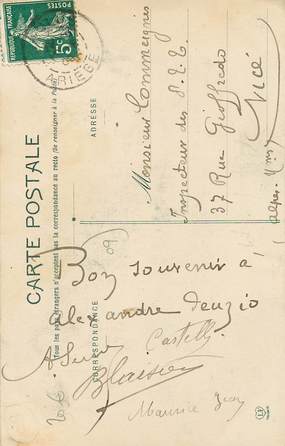 RÉPUBLIQUE FRANÇAISE
POSTES
5c
ARIÈGE
CARTE POSTALE
Tous les pays étrangers n'acceptent pas la correspondance au recto (Se renseigner à la Poste)
CORRESPONDANCE
ADRESSE
Monsieur Commeignes
Inspecteur des P.T.T.
37 Rue Gioffredo
Nice
Alpes Mmes
09
Bon souvenir à
Alexandre
Castelly
Blaisier
Maurice